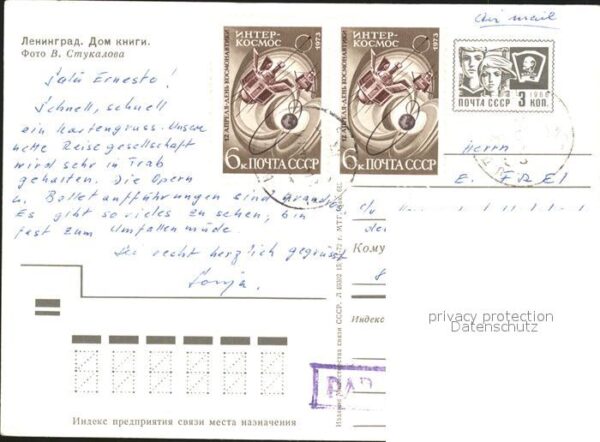 Air mail
Ленинград. Дом книги.
Фото В. Стукалова
Salü Ernesto!
Schnell, schnell
ein Kartengruss. Unsere
nette Reisegesellschaft
wird sehr in Trab
gehalten. Die Opern
u. Ballettaufführungen sind grandios
Es gibt so vieles zu sehen, bin
fast zum Umfallen müde.
Sei recht herzlich gegrüsst
Sonja.
12 АПРЕЛЯ-ДЕНЬ КОСМОНАВТИКИ
ИНТЕР-
КОСМОС
1973
6К ПОЧТА СССР
12 АПРЕЛЯ-ДЕНЬ КОСМОНАВТИКИ
ИНТЕР-
КОСМОС
1973
6К ПОЧТА СССР
1966
ПОЧТА СССР 3 КОП.
Herrn
E. FREI
c/o
Кому
Индекс
privacy protection
Datenschutz
PAR
Министерства связи СССР.
Индекс предприятия связи места назначения